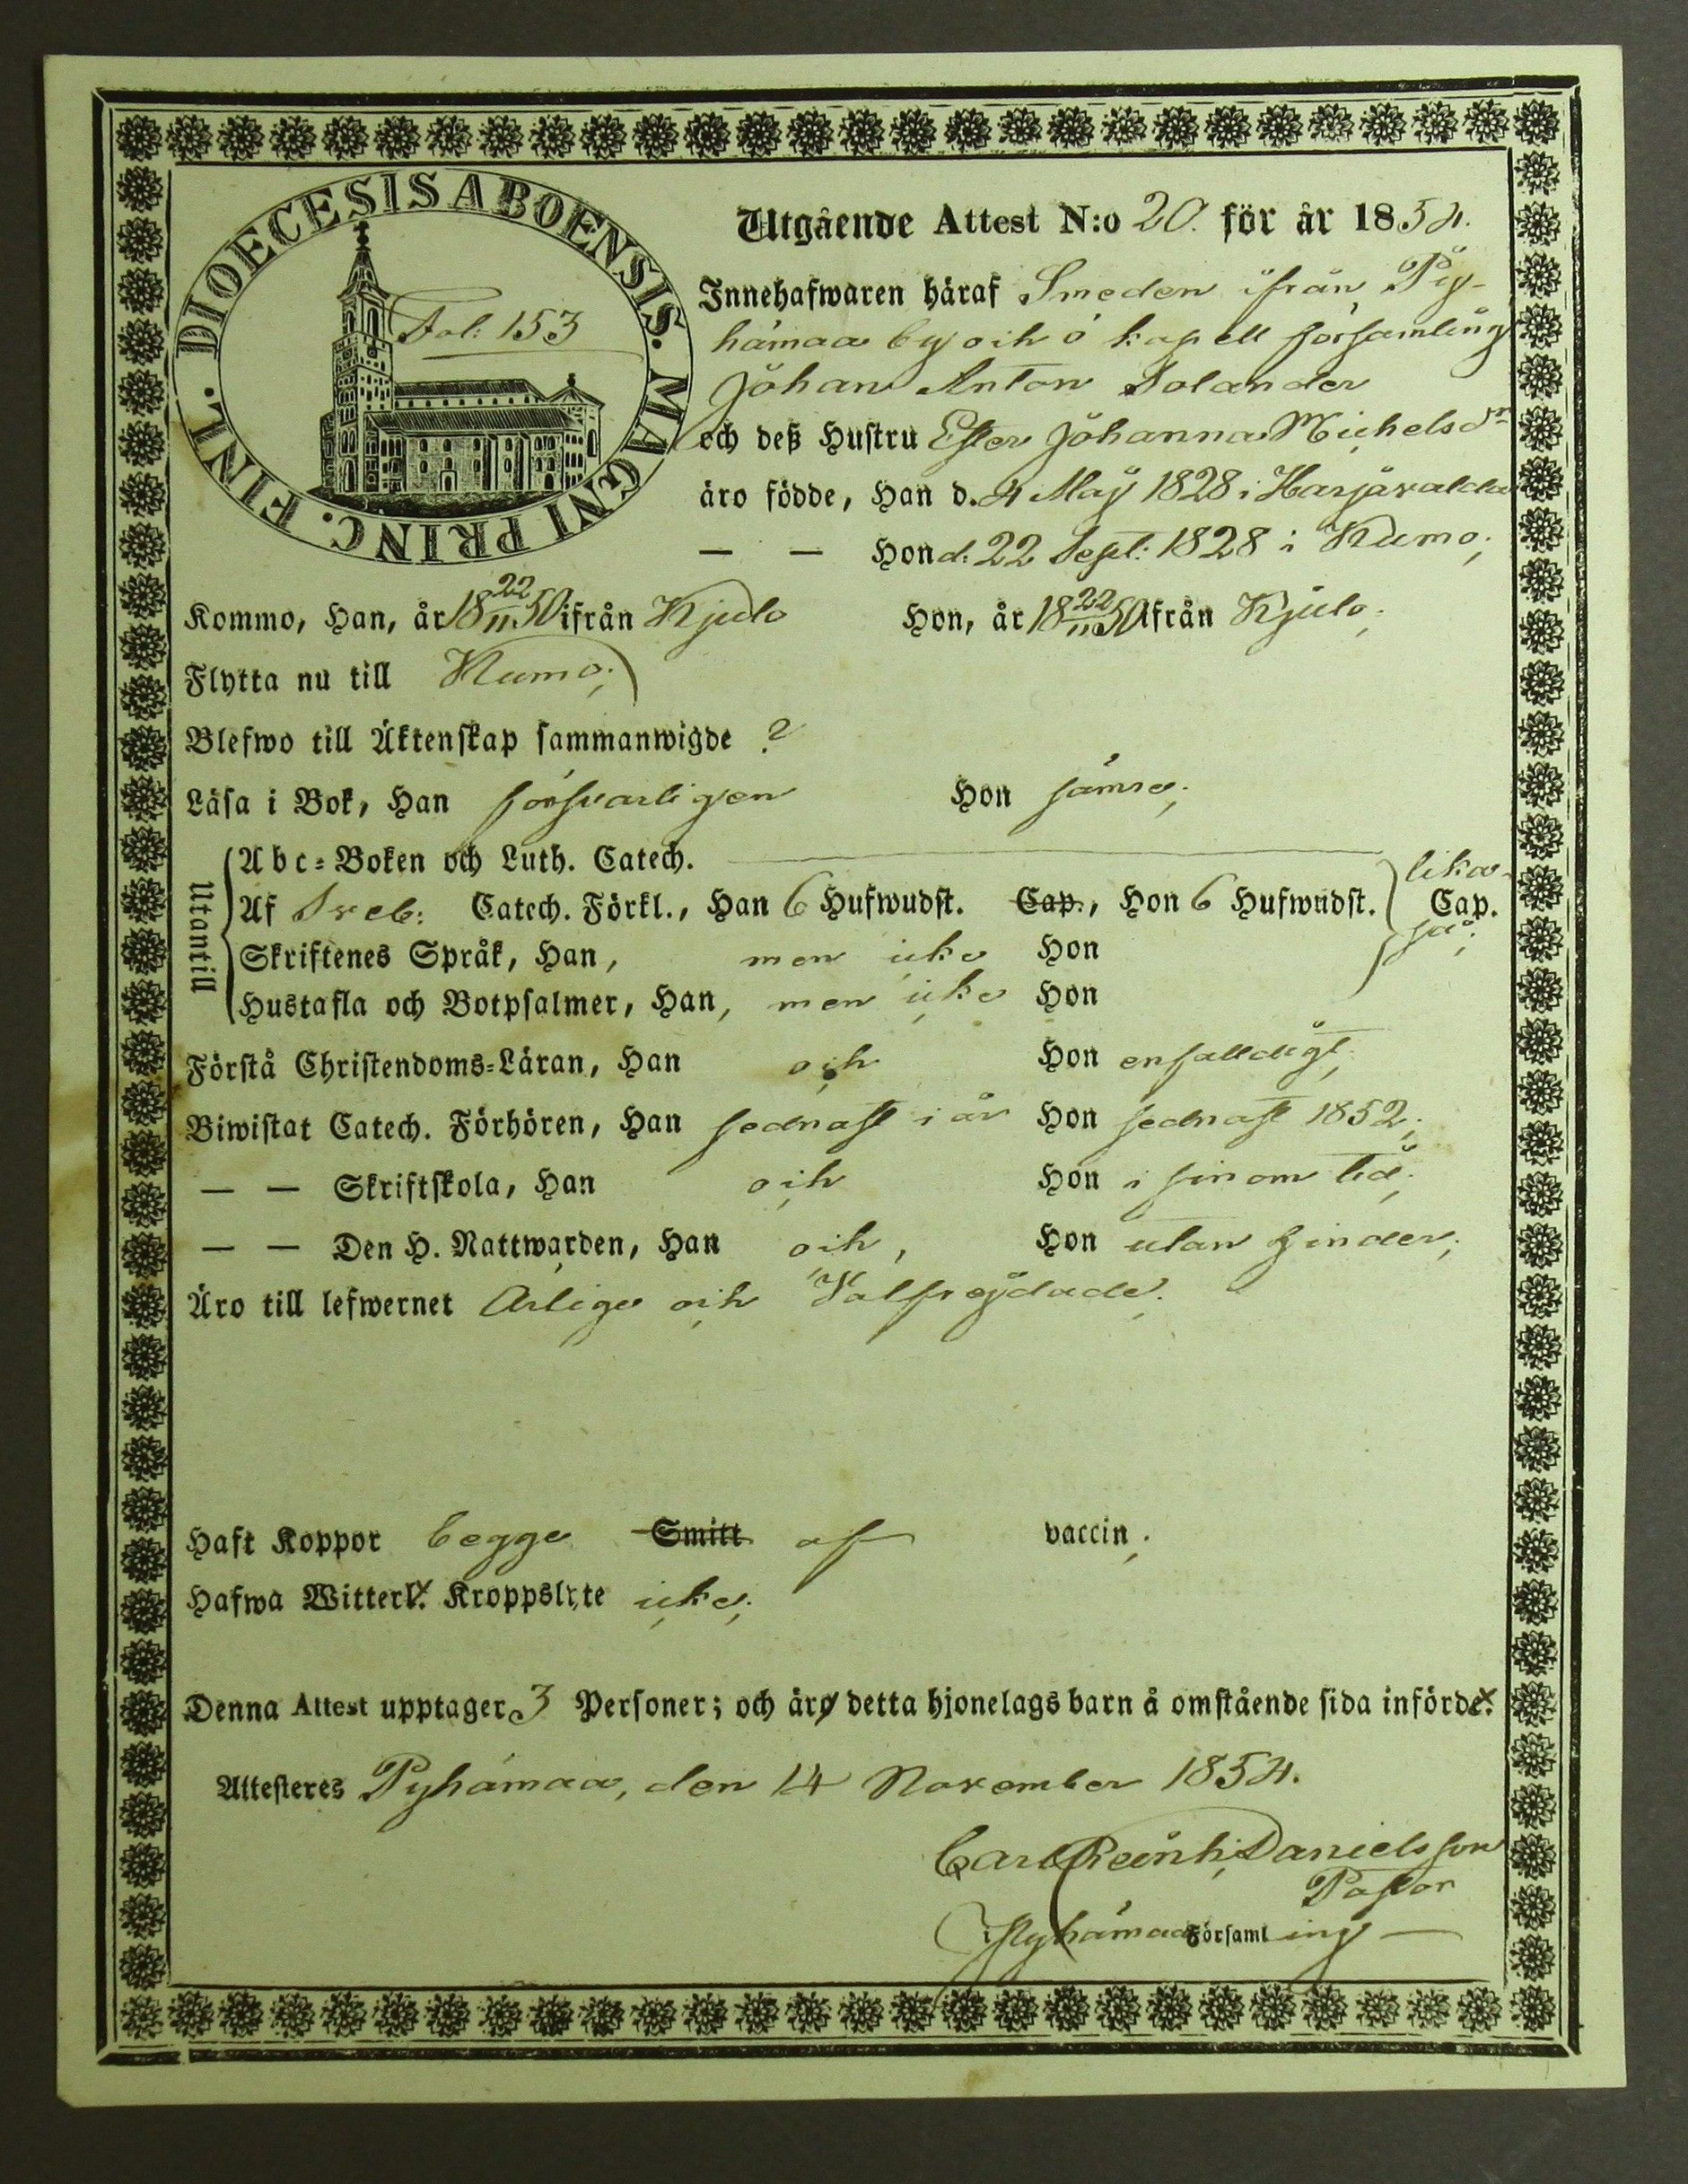 DIOECESIS ABOENSIS. MAGNI PRINC. FINL.
Fol: 153
Utgående Attest N:o 20. för år 1854.
Innehafwaren häraf Smeden ifrån Py-
hämaa by och kapell församling
Johan Anton Solander
och deß Hustru Ester Johanna Michelsdr
äro födde, Han d. 4 Maj 1828 i Harjavalda
— — Hon d: 22 Sept: 1828 i Kumo;
Kommo, Han, år 18 22/11 50 ifrån Kjulo Hon, år 18 22/11 50 ifrån Kjulo;
Flytta nu till Kumo;
Blefwo till Äktenskap sammanwigde ?
Läsa i Bok, Han försvarligen Hon sämre;
Utantill
Abc-Boken och Luth. Catech.
Af Sveb: Catech. Förkl., Han 6 Hufwudst. Cap., Hon 6 Hufwudst. lika Cap. så;
Skriftenes Språk, Han, men icke Hon
Hustafla och Botpsalmer, Han, men icke Hon
Förstå Christendoms-Läran, Han och Hon enfalldigt;
Biwistat Catech. Förhören, Han sednast i år Hon sednast 1852;
— — Skriftskola, Han och Hon i sinom tid;
— — Den H. Nattwarden, Han och, Hon utan hinder;
Äro till lefwernet Ärliga och Välfrejdade;
Haft Koppor begge Smitt af vaccin;
Hafwa Witterl. Kroppslyte icke;
Denna Attest upptager 3 Personer; och äro detta hjonelags barn å omstående sida införde.
Attesteres Pyhämaa, den 14 November 1854.
Carl Reinh; Danielsson
Pastor
i Pyhämaa Församling